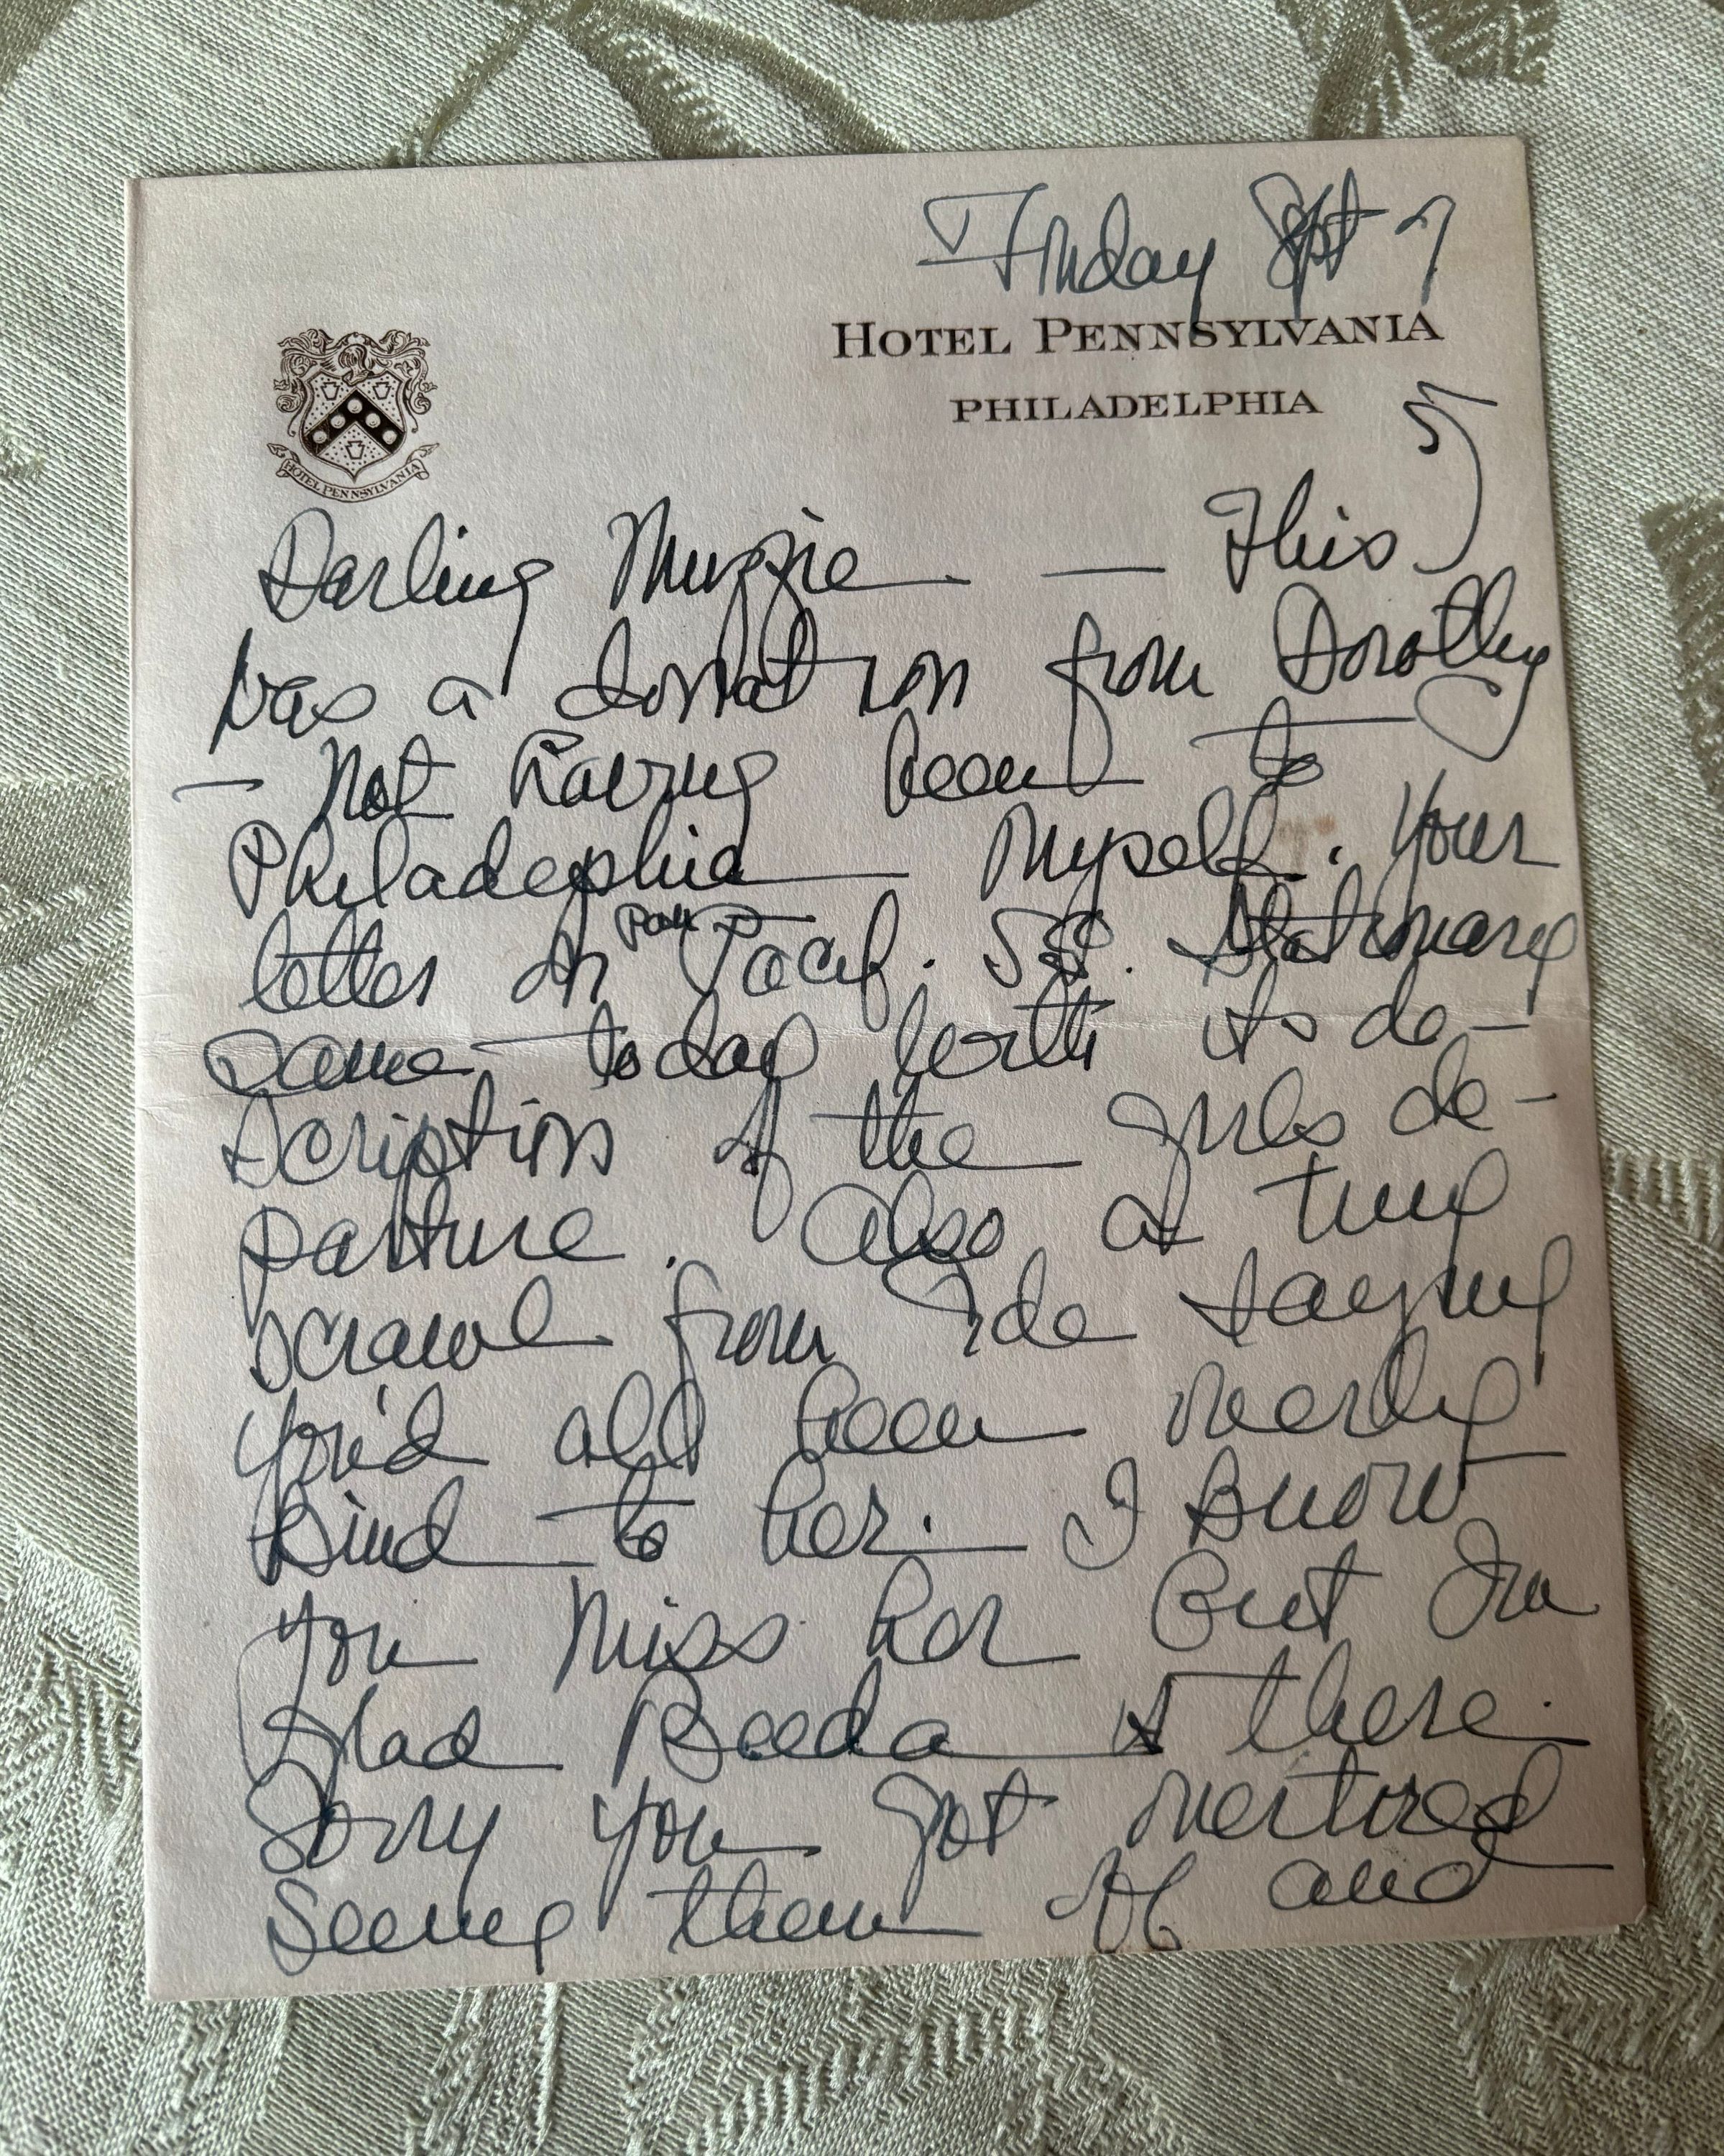 Friday Sept 7
HOTEL PENNSYLVANIA
PHILADELPHIA
HOTEL PENNSYLVANIA
Darling Muzzie — This
was a donation from Dorothy
— Not having been to
Philadephia Myself. Your
letter on Pan Pacif. S.S. Stationary
came today with its de-
scription of the girls de-
parture. Also a tiny
scrawl from Ide saying
you'd all been overly
kind to her. I know
you miss her but I'm
glad Beeda is there.
Sorry you got overtired
Seeing them off and